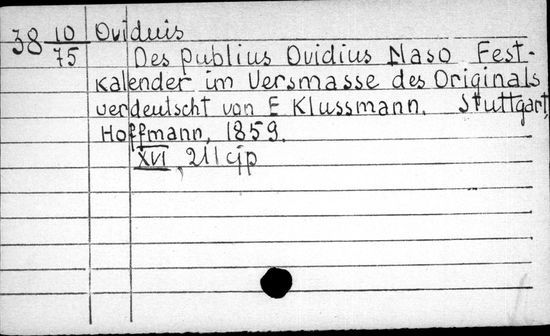 38 10/75 Ovidius
Des Publius Ovidius Naso Fest-
kalender im Versmasse des Originals
verdeutscht von E Klussmann. Stuttgart,
Hoffmann, 1859.
XVI, 211 cjp